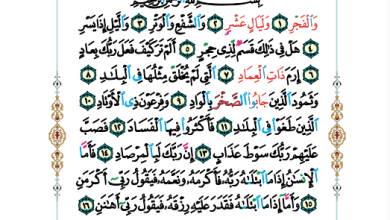 بِسْمِ اللَّهِ الرَّحْمَٰنِ الرَّحِيمِ
وَالْفَجْرِ ١ وَلَيَالٍ عَشْرٍ ٢ وَالشَّفْعِ وَالْوَتْرِ ٣ وَاللَّيْلِ إِذَا يَسْرِ
٤ هَلْ فِي ذَٰلِكَ قَسَمٌ لِّذِي حِجْرٍ ٥ أَلَمْ تَرَ كَيْفَ فَعَلَ رَبُّكَ بِعَادٍ
٦ إِرَمَ ذَاتِ الْعِمَادِ ٧ الَّتِي لَمْ يُخْلَقْ مِثْلُهَا فِي الْبِلَٰدِ ٨
وَثَمُودَ الَّذِينَ جَابُوا الصَّخْرَ بِالْوَادِ ٩ وَفِرْعَوْنَ ذِي الْأَوْتَادِ ١٠
الَّذِينَ طَغَوْا فِي الْبِلَٰدِ ١١ فَأَكْثَرُوا فِيهَا الْفَسَادَ ١٢ فَصَبَّ
عَلَيْهِمْ رَبُّكَ سَوْطَ عَذَابٍ ١٣ إِنَّ رَبَّكَ لَبِالْمِرْصَادِ ١٤ فَأَمَّا
الْإِنسَٰنُ إِذَا مَا ابْتَلَىٰهُ رَبُّهُ فَأَكْرَمَهُ وَنَعَّمَهُ فَيَقُولُ رَبِّي أَكْرَمَنِ
١٥ وَأَمَّا إِذَا مَا ابْتَلَىٰهُ فَقَدَرَ عَلَيْهِ رِزْقَهُ فَيَقُولُ رَبِّي أَهَٰنَنِ ١٦